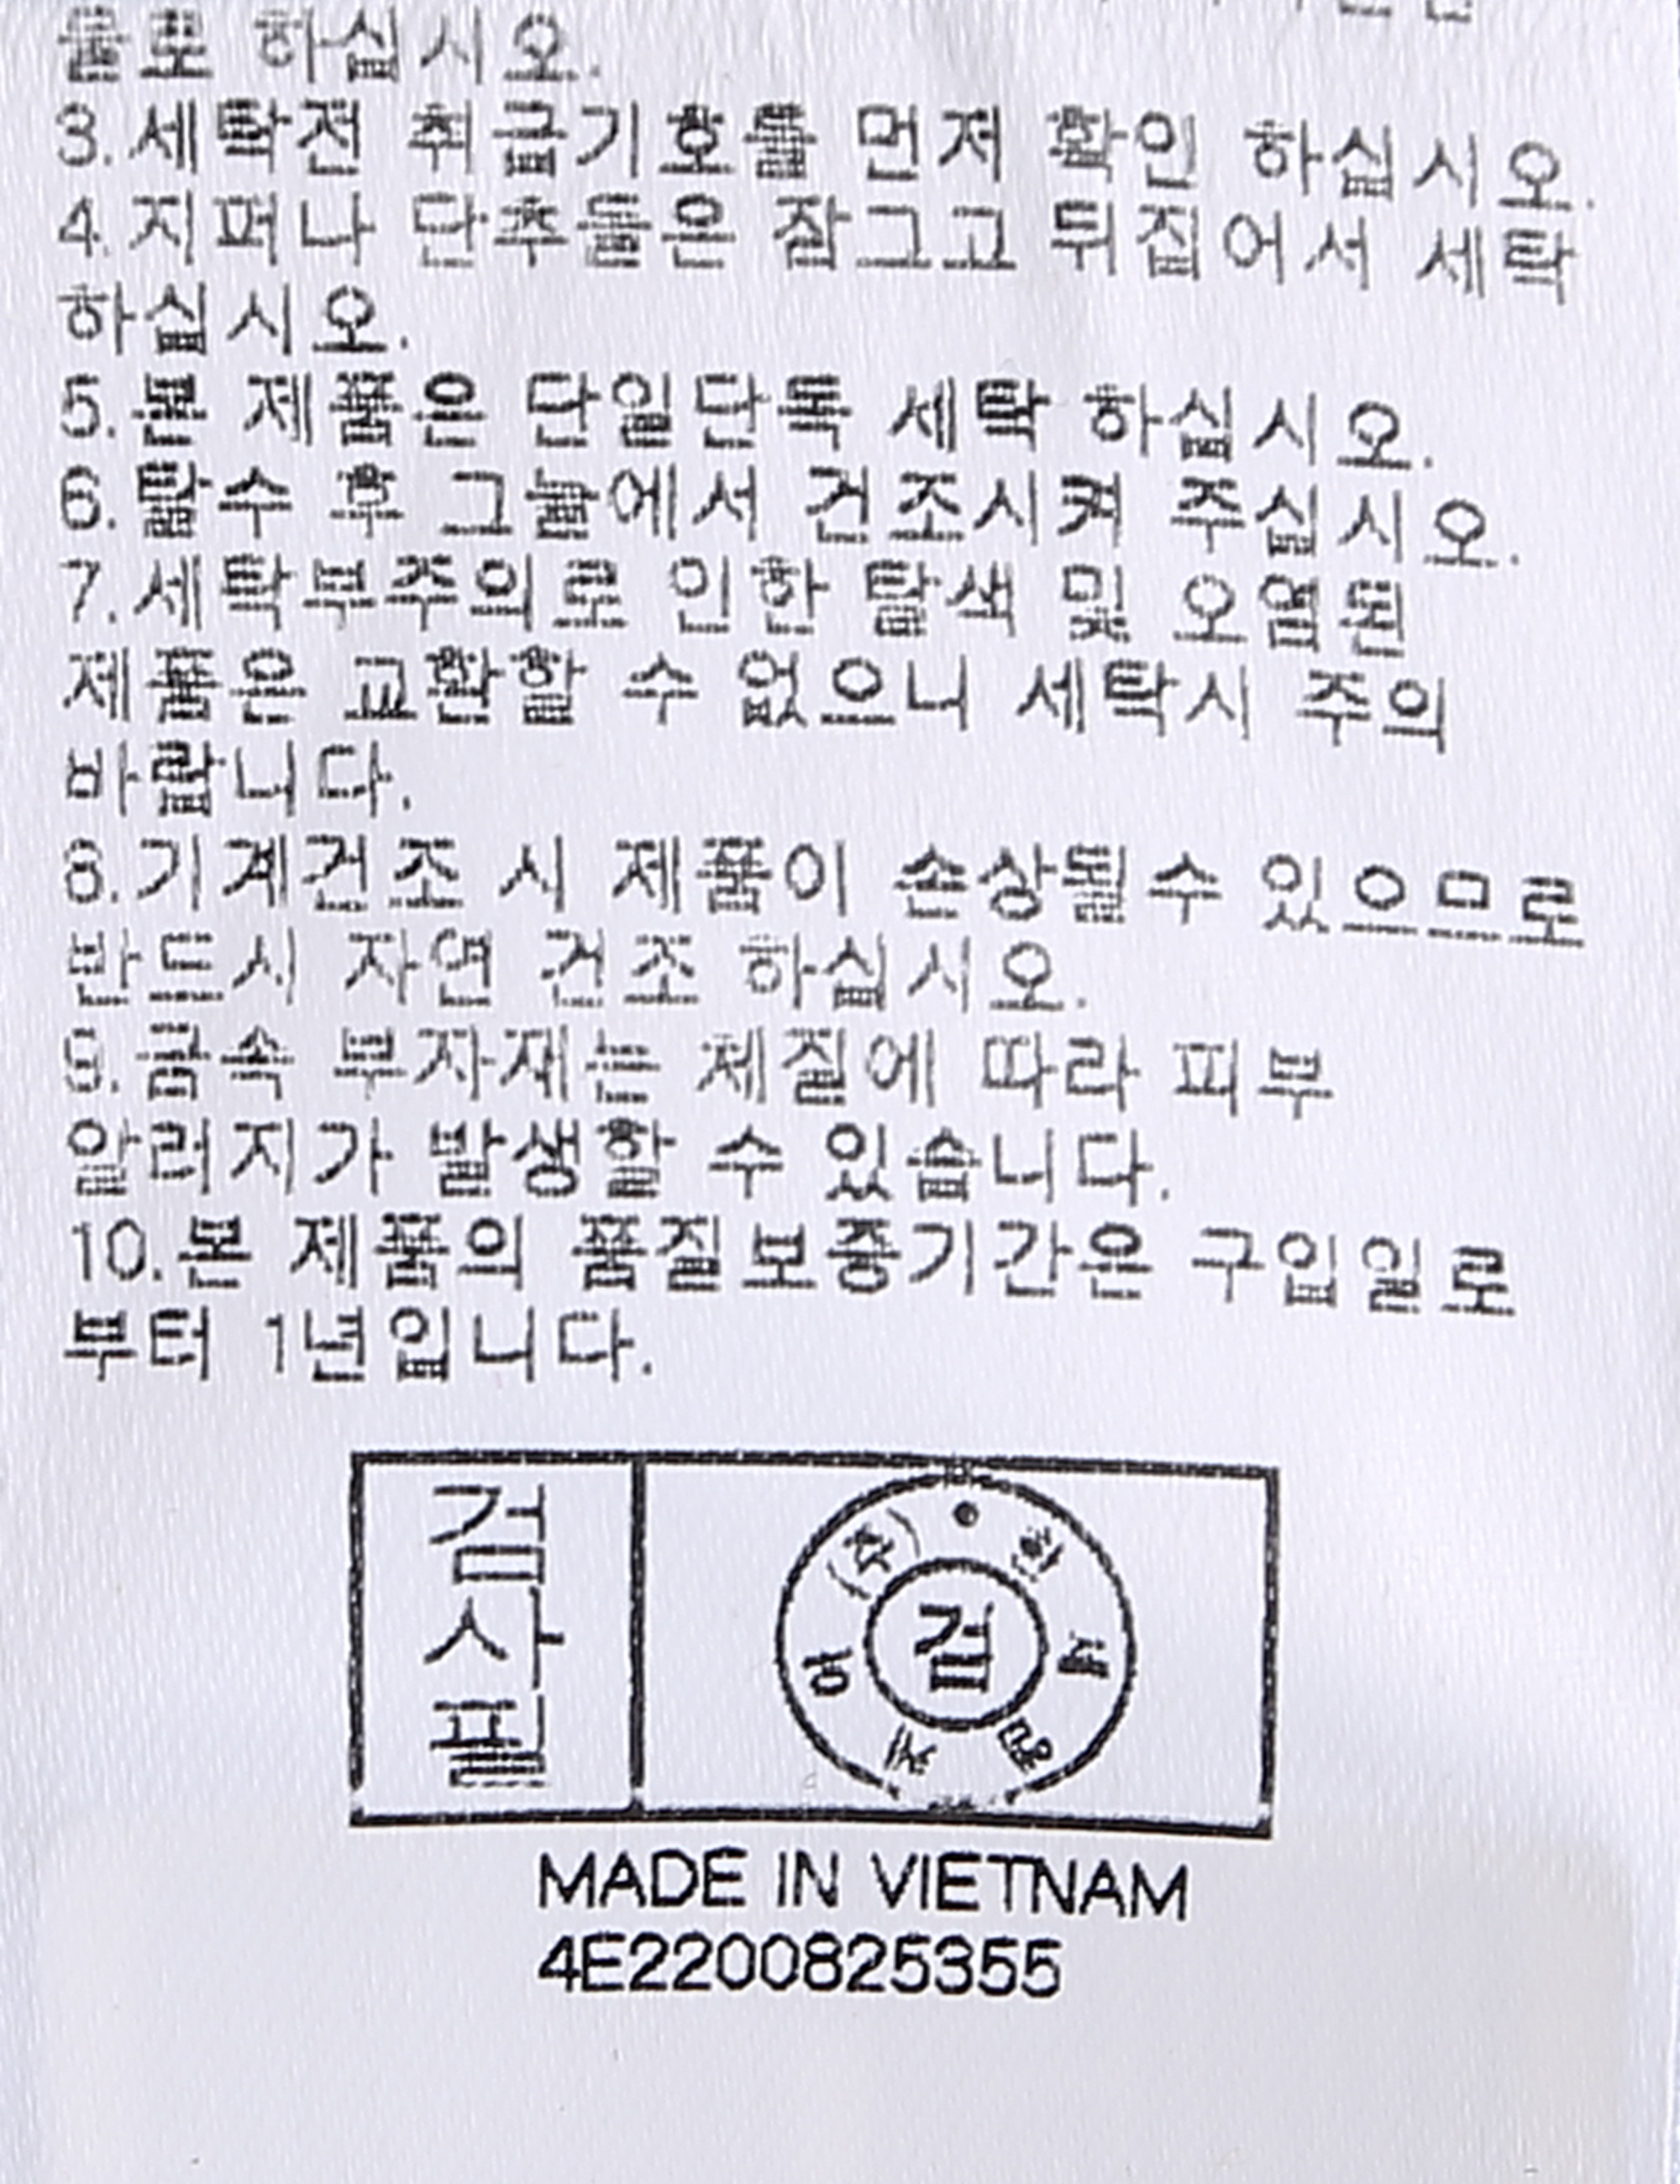 물로 하십시오.
3.세탁전 취급기호를 먼저 확인 하십시오.
4.지퍼나 단추들은 잠그고 뒤집어서 세탁
하십시오.
5.본 제품은 단일단독 세탁 하십시오.
6.탈수 후 그늘에서 건조시켜 주십시오.
7.세탁부주의로 인한 탈색 및 오염된
제품은 교환할 수 없으니 세탁시 주의
바랍니다.
8.기계건조 시 제품이 손상될수 있으므로
반드시 자연 건조 하십시오.
9.금속 부자재는 체질에 따라 피부
알러지가 발생할 수 있습니다.
10.본 제품의 품질보증기간은 구입일로
부터 1년입니다.
검사필
(주)
검
MADE IN VIETNAM
4E2200825355